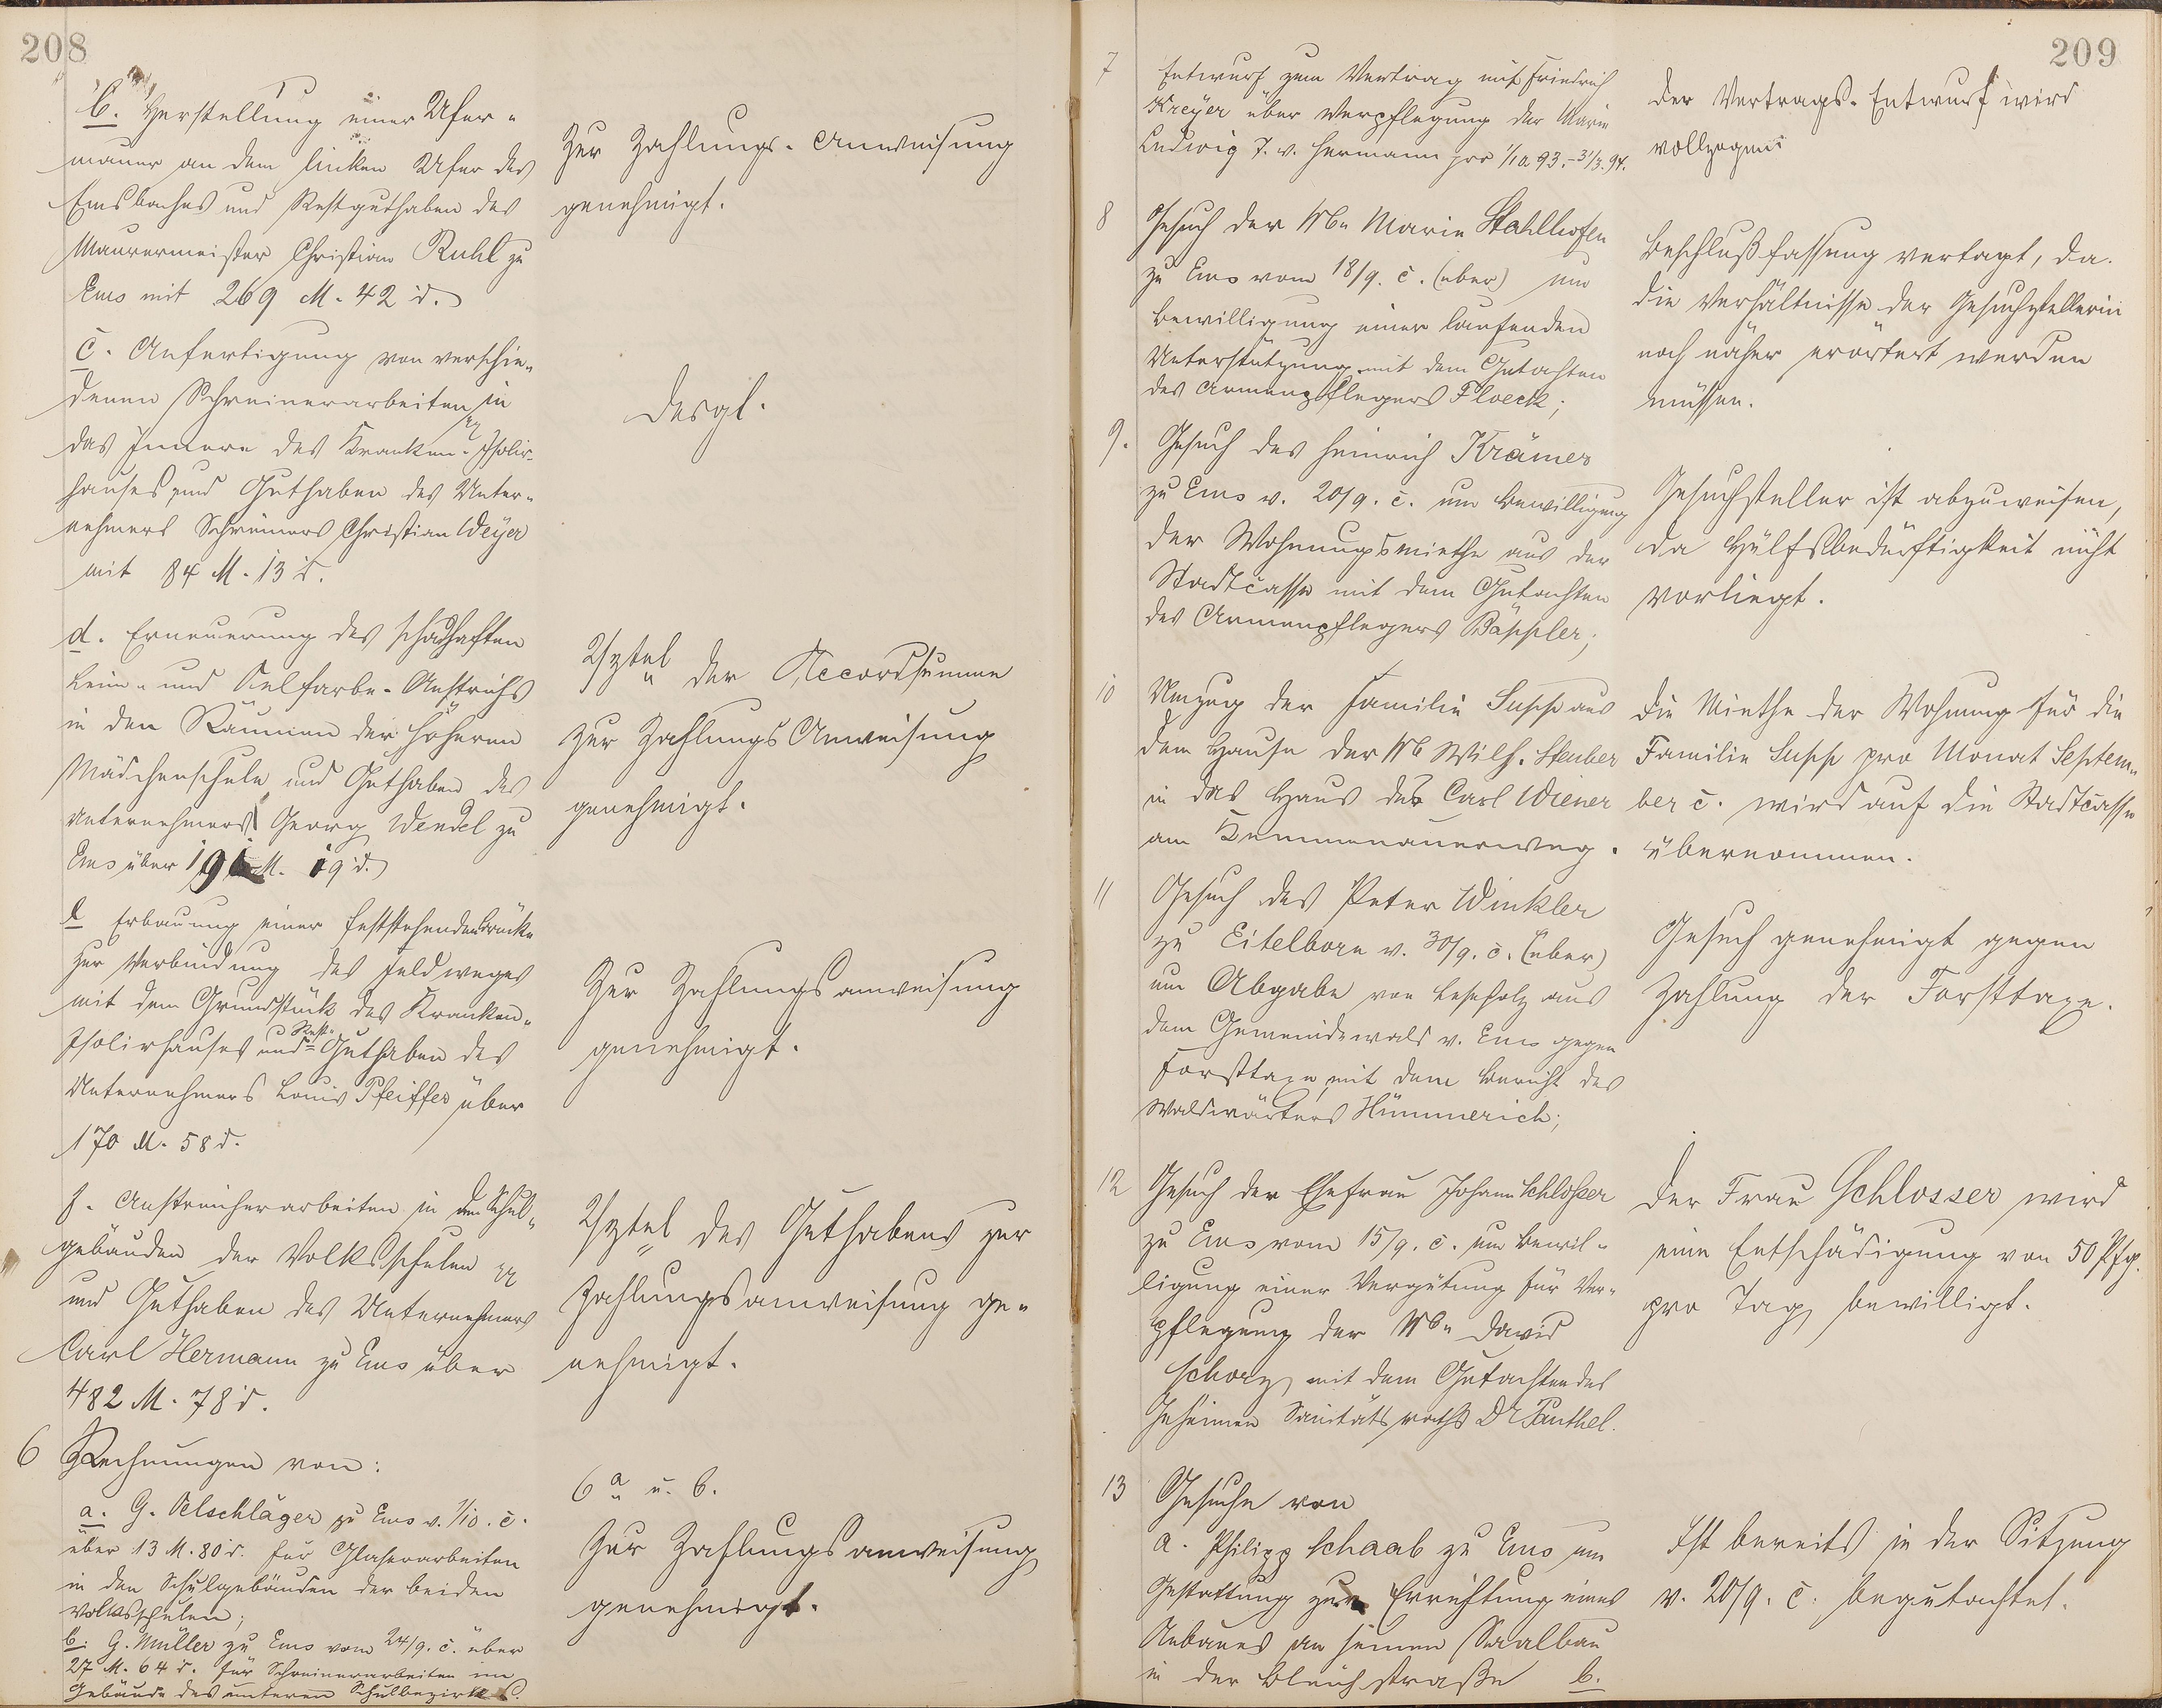 208
b. Herstellung einer Ufer-
mauer an dem linken Ufer des
Emsbaches und Restguthaben des
Maurermeister Christian Ruhl zu
Ems mit 269 M. 42 d.
Zur Zahlungs-Anweisung
genehmigt.
c. Anfertigung von verschie-
denen Schreinerarbeiten in
das Innere des Kranken-Isolir-
hauses und Guthaben des Unter-
nehmers Schreiners Christian Weyer
mit 84 M. 13 d.
Desgl.
d. Erneuerung des schadhaften
Leim- und Oelfarbe-Anstrichs
in den Räumen der höheren
Mädchenschule und Guthaben des
Unternehmers Georg Wendel zu
Ems über 191 M. 19 d.
2/3tel der Accordsumme
zur Zahlungs Anweisung
genehmigt.
e Erbauung einer feststehenden Brücke
zur Verbindung des Feldweges
mit dem Grundstück des Kranken-
Isolirhauses und Rest-Guthaben des
Unternehmers Louis Pfeiffer über
170 M. 58 d.
Zur Zahlungsanweisung
genehmigt.
f. Anstreicherarbeiten in den Schul-
gebäuden der Volksschulen
und Guthaben des Unternehmers
Carl Hermann zu Ems über
482 M. 78 d.
2/3tel des Guthabens zur
Zahlungsanweisung ge-
nehmigt.
6 Rechnungen von:
a. G. Oelschläger zu Ems v. 1/10. c.
über 13 M. 80 d. für Glaserarbeiten
in den Schulgebäuden der beiden
Volksschulen;
b. G. Müller zu Ems vom 24/9. c. über
27 M. 64 d. für Schreinerarbeiten im
Gebäude des unteren Schulbezirks.
6 a u. b.
Zur Zahlungsanweisung
genehmigt.
209
7 Entwurf zum Vertrag mit Friedrich
Kreyer über Verpflegung der Marie
Ludwig T. v. Hermann pro 1/10 93.-31/3.94.
Der Vertrags-Entwurf wird
vollzogen:
8 Gesuch der Wwe Marie Stahlhofen
zu Ems vom 18/9. c. (über) um
Bewilligung einer laufenden
Unterstützung mit dem Gutachten
des Armenpflegers Floeck;
Beschlußfassung vertagt, da
die Verhältnisse der Gesuchstellerin
noch näher erörtert werden
müssen.
9. Gesuch des Heinrich Krämer
zu Ems v. 20/9. c. um Bewilligung
der Wohnungsmiethe aus der
Stadtcasse mit dem Gutachten
des Armenpflegers Bäppler;
Gesuchsteller ist abzuweisen,
da Hülfsbedürftigkeit nicht
vorliegt.
10 Umzug der Familie Supp aus
dem Hause der Ww Wilh. Steuber
in das Haus des Carl Wiener
am Kemmenauerweg.
Die Miethe der Wohnung für die
Familie Supp pro Monat Septem-
ber c. wird auf die Stadtcasse
übernommen.
11 Gesuch des Peter Winkler
zu Eitelborn v. 30/9. c. (über)
um Abgabe von Leseholz aus
dem Gemeindewald v. Ems gegen
Forsttaxe mit dem Bericht des
Waldwärters Hümmerich;
Gesuch genehmigt gegen
Zahlung der Forsttaxe.
12 Gesuch der Ehefrau Johann Schlosser
zu Ems vom 15/9. c. um Bewil-
ligung einer Vergütung für Ver-
pflegung der Wwe David
Schorz, mit dem Gutachten des
Geheimen Sanitätsraths Dr Panthel.
Der Frau Schlosser wird
eine Entschädigung von 50 Pfg.
pro Tag bewilligt.
13 Gesuche von
a. Philipp Schaab zu Ems um
Gestattung zur Errichtung eines
Anbaues an seinen Saalbau
in der Bleichstraße b.
Ist bereits in der Sitzung
v. 20/9. c. begutachtet.